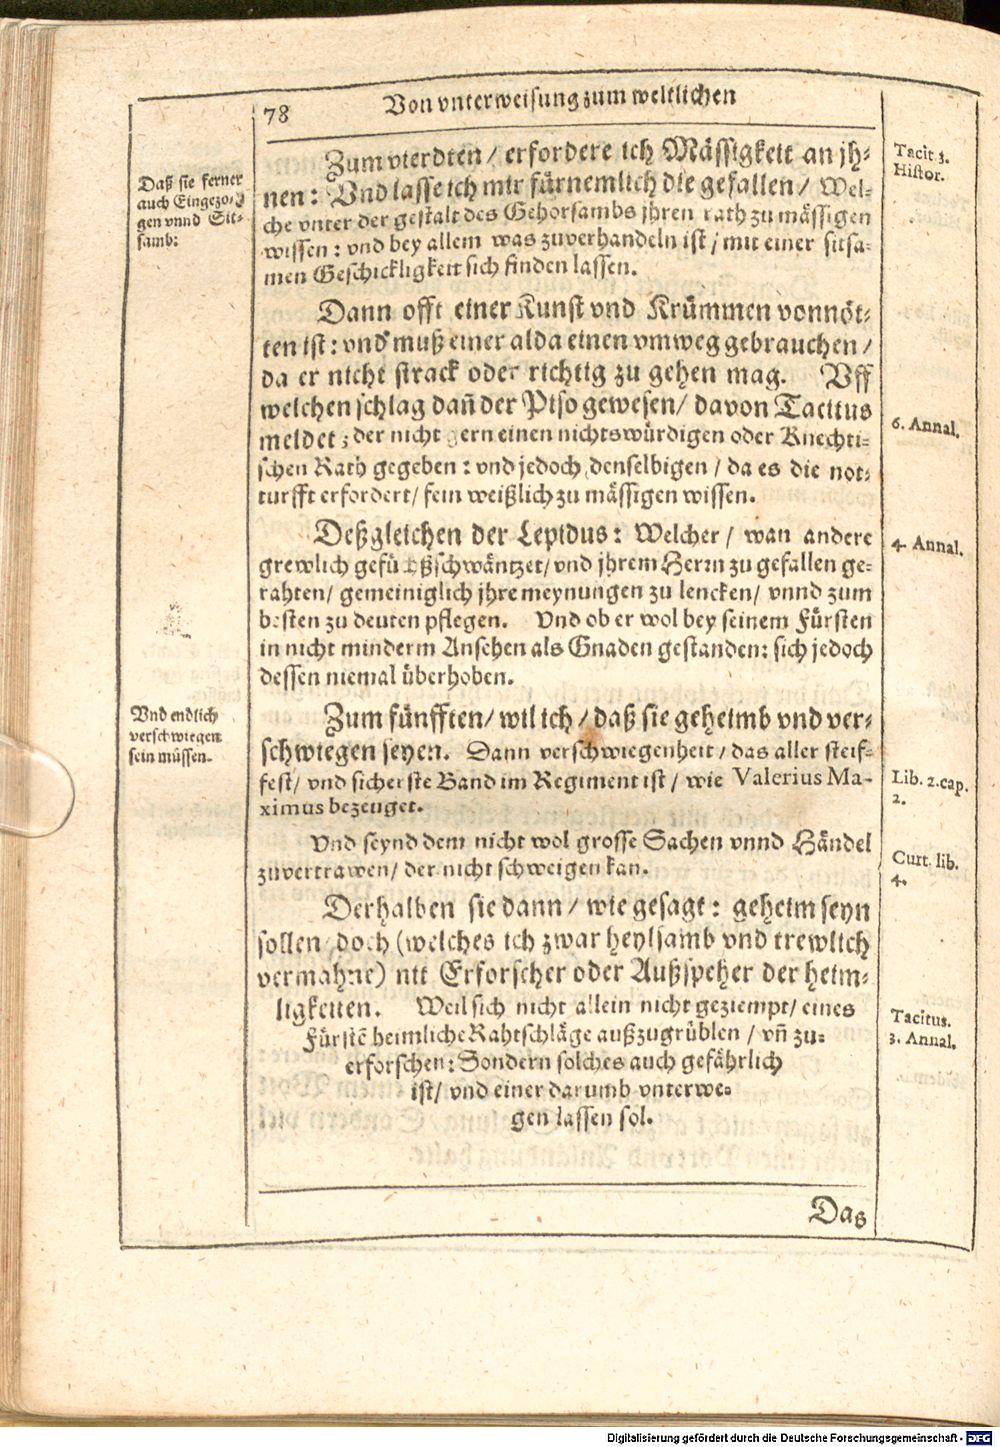 78
Von vnterweisung zum weltlichen
Daß sie ferner
auch Eingezo-
gen vnnd Sit-
samb:
Zum vierdten / erfordere ich Mässigkeit an jh-
nen: Vnd lasse ich mir fürnemlich die gefallen / Wel-
che vnter der gestalt des Gehorsambs jhren rath zu mässigen
wissen: vnd bey allem was zuverhandeln ist / mit einer sitsa-
men Geschickligkeit sich finden lassen.
Tacit 3.
Histor.
Dann offt einer Kunst vnd Krümmen vonnöt-
ten ist: vnd muß einer alda einen vmweg gebrauchen /
da er nicht strack oder richtig zu gehen mag. Vff
welchen schlag dañ der Piso gewesen / davon Tacitus
meldet; der nicht gern einen nichtswürdigen oder Knechti-
schen Rath gegeben: vnd jedoch denselbigen / da es die not-
turfft erfordert / fein weißlich zu mässigen wissen.
6. Annal.
Deßgleichen der Lepidus: Welcher / wan andere
grewlich gefüchßschwäntzet / vnd jhrem Herrn zu gefallen ge-
rahten / gemeiniglich jhre meynungen zu lencken / vnnd zum
besten zu deuten pflegen. Vnd ob er wol bey seinem Fürsten
in nicht minderm Ansehen als Gnaden gestanden: sich jedoch
dessen niemal überhoben.
4. Annal.
Vnd endlich
verschwiegen
sein müssen.
Zum fünfften / wil ich / daß sie geheimb vnd ver-
schwiegen seyen. Dann verschwiegenheit / das aller steif-
fest / vnd sicherste Band im Regiment ist / wie Valerius Ma-
ximus bezeuget.
Lib. 2. cap.
2.
Vnd seynd dem nicht wol grosse Sachen vnnd Händel
zuvertrawen / der nicht schweigen kan.
Curt. lib.
4.
Derhalben sie dann / wie gesagt: geheim seyn
sollen, doch (welches ich zwar heylsamb vnd trewlich
vermahne) nit Erforscher oder Außspeher der heim-
ligkeiten. Weil sich nicht allein nicht geziempt / eines
Fürstē heimliche Rahtschläge außzugrüblen / vñ zu-
erforschen: Sondern solches auch gefährlich
ist / vnd einer darumb vnterwe-
gen lassen sol.
Tacitus.
3. Annal.
Das
Digitalisierung gefördert durch die Deutsche Forschungsgemeinschaft - DFG